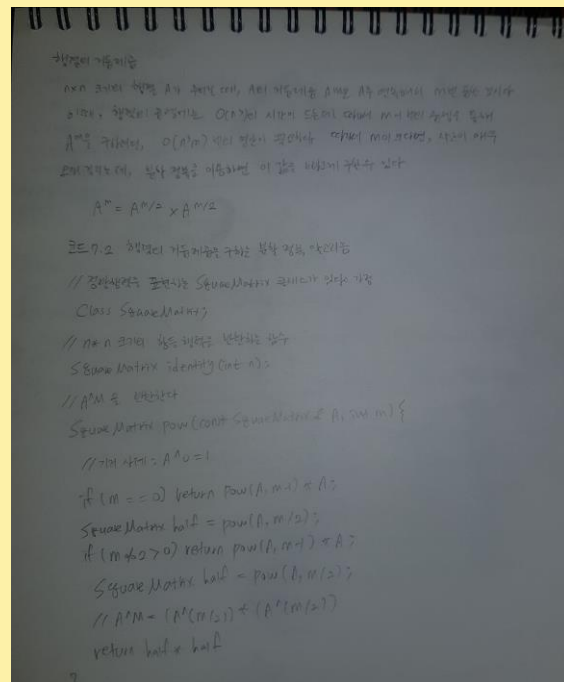 행렬의 거듭제곱
n×n 크기의 행렬 A가 주어질 때, A의 거듭제곱 A^m은 A를 연속해서 m번 곱한 것이다
이때, 행렬의 곱셈에는 O(n³)의 시간이 드므로 따라서 m-1번의 곱셈을 통해
A^m을 구하려면, O(n³m)번의 연산이 필요하다 따라서 m이 크다면, 시간이 매우
오래 걸리는데, 분할 정복을 이용하면 이 값을 빠르게 구할 수 있다
A^m = A^m/2 × A^m/2
코드 7.2 행렬의 거듭제곱을 구하는 분할 정복 알고리즘
// 정방행렬을 표현하는 SquareMatrix 클래스가 있다고 가정
Class SquareMatrix;
// n*n 크기의 항등 행렬을 반환하는 함수
SquareMatrix identity(int n);
// A^M을 반환한다
SquareMatrix pow(const SquareMatrix& A, int m) {
// 기저 사례 : A^0=1
if (m == 0) return pow(A, m-1) * A;
SquareMatrix half = pow(A, m/2);
if (m%2>0) return pow(A, m-1) * A;
SquareMatrix half = pow(A, m/2);
// A^M = (A^(m/2)) * (A^(m/2))
return half * half